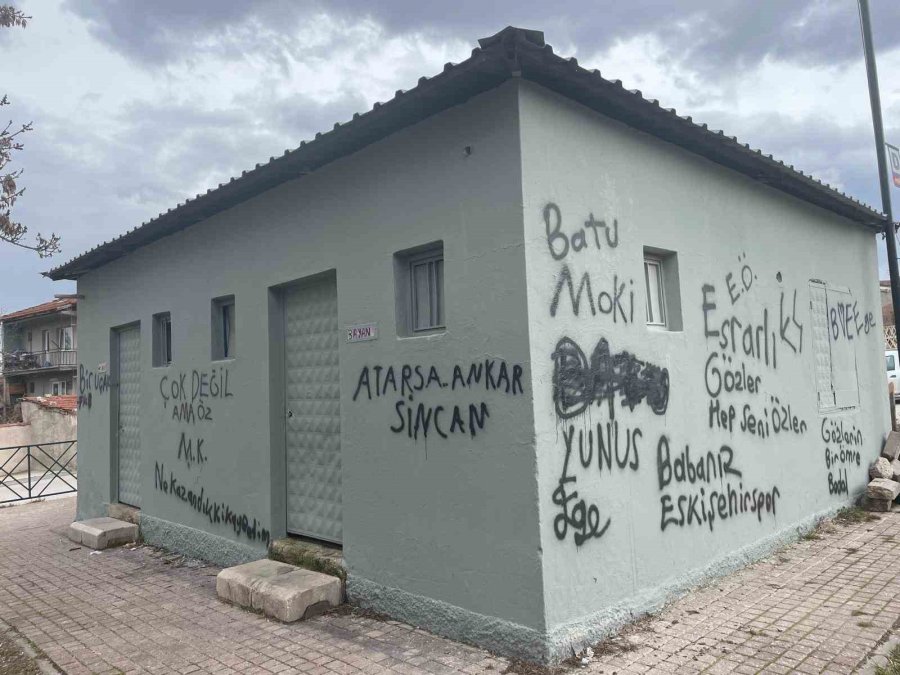 ÇOK DEĞİL
AMA ÖZ
M.K.
Ne kazandıkki kaybedim
BAYAN
ATARSA-ANKAR
SİNCAN
Batu
Moki
YUNUS
Ege
E.Ö.
Esrarlı
Gözler
Hep Seni Özler
Babanız
Eskişehirspor
Gözlerin
Bir Ömre
Bedel